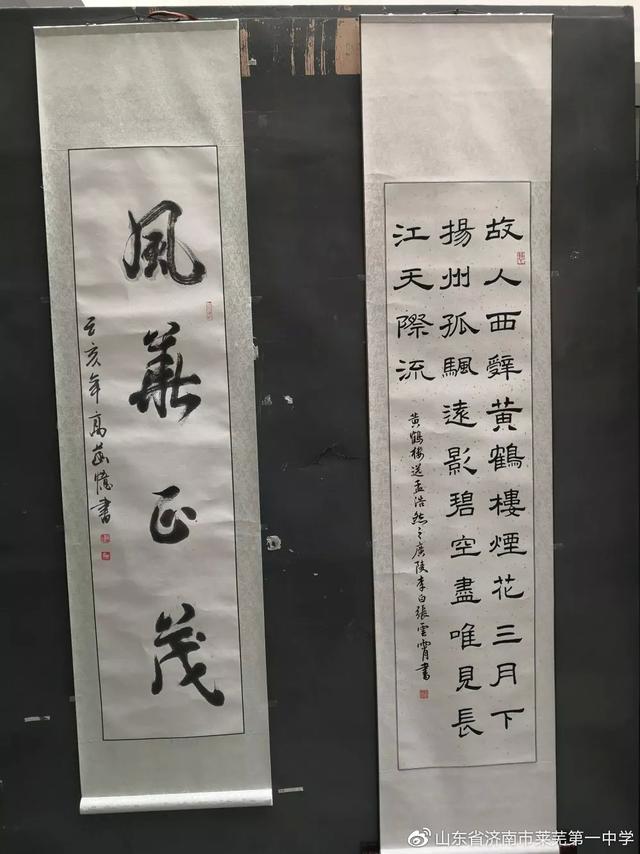 風華正茂
己亥年高茵憶書
故人西辭黄鶴樓煙花三月下
揚州孤颿遠影碧空盡唯見長
江天際流
黄鶴樓送孟浩然之廣陵李白張雲霄書
@山东省济南市莱芜第一中学